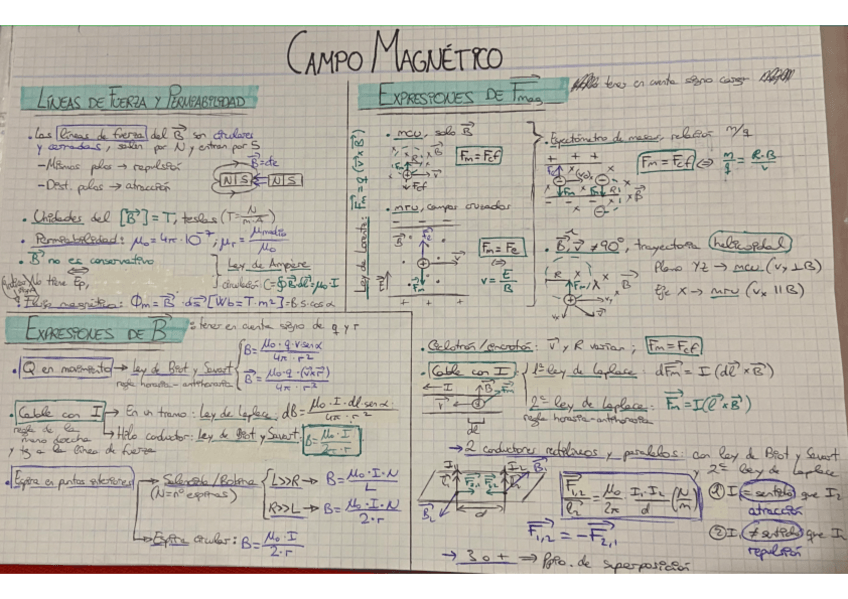 CAMPO MAGNÉTICO
LÍNEAS DE FUERZA Y PERMEABILIDAD
• Las líneas de fuerza del B⃗ son circulares
y cerradas, salen por N y entran por S
– Mismos polos → repulsión
– Dist. polos → atracción
B⃗=cte
N S N S
• Unidades del [B⃗] = T, teslas (T = N/m·A)
• Permeabilidad: μ₀ = 4π·10⁻⁷, μr = μmedio/μ₀
• B⃗ no es conservativo
⇔
No tiene Ep,
Ley de Ampère
circulación C = ∮B⃗·dl⃗ = μ₀·I
• Flujo magnético: Φm = B⃗·ds⃗ [Wb = T·m²] = B·s·cos α
EXPRESIONES DE F⃗mag
tener en cuenta signo carga
Ley de Lorentz: F⃗m = q·(v⃗×B⃗)
• MCU, solo B⃗
Fm = Fcf
Fm
Fcf
• MRU, campos cruzados
Fm = Fe
v = E/B
• Espectómetro de masas, relación m/q
Fm = Fcf ⇔ m/q = R·B/v
• B⃗, v⃗ ≠ 90°, trayectoria helicoidal
Plano YZ → mcu (vx ⊥ B)
Eje X → mru (vx || B)
EXPRESIONES DE B⃗
: tener en cuenta signo de q y r
• Q en movimiento → Ley de Biot y Savart
regla horaria-antihoraria
B = μ₀·q·v·sen α / 4π·r²
B⃗ = μ₀·q·(v⃗×r⃗) / 4π·r²
• Cable con I → En un tramo: Ley de Laplace, dB = μ₀·I·dl·sen α / 4π·r²
regla de la
mano derecha
y tg a la línea de fuerza
→ Hilo conductor: Ley de Biot y Savart: B = μ₀·I / 2π·r
• Espira en puntos interiores → Solenoide/Bobina
(N = nº espiras)
L>>R → B = μ₀·I·N / L
R>>L → B = μ₀·I·N / 2·r
→ Espira circular: B = μ₀·I / 2·r
• Ciclotrón/sincrotrón: v⃗ y R varían; Fm = Fcf
• Cable con I
1ª ley de Laplace: dF⃗m = I(dl⃗×B⃗)
2ª ley de Laplace: F⃗m = I(l⃗×B⃗)
regla horaria-antihoraria
→ 2 conductores rectilíneos y paralelos: con ley de Biot y Savart
y 2ª Ley de Laplace
F⃗₁,₂/l₂ = μ₀/2π · I₁·I₂/d (N/m)
① I₁ = sentido que I₂
atracción
② I₁ ≠ sentido que I₂
repulsión
F⃗₁,₂ = −F⃗₂,₁
→ 3 o + ⇒ Ppio. de superposición